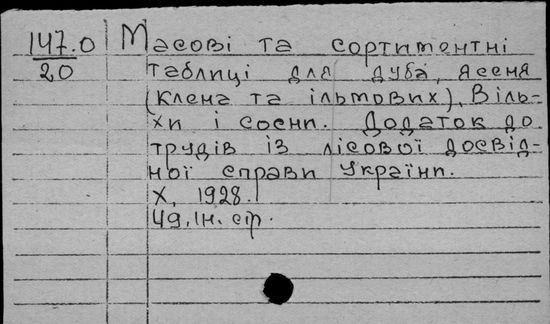 147.0
20
Масові та сортиментні
таблиці для дуба, ясеня
(клена та ільмових), Віль-
хи і сосни. Додаток до
трудів із лісової досвід-
ної справи України.
Х, 1928.
49, Ін. стр.